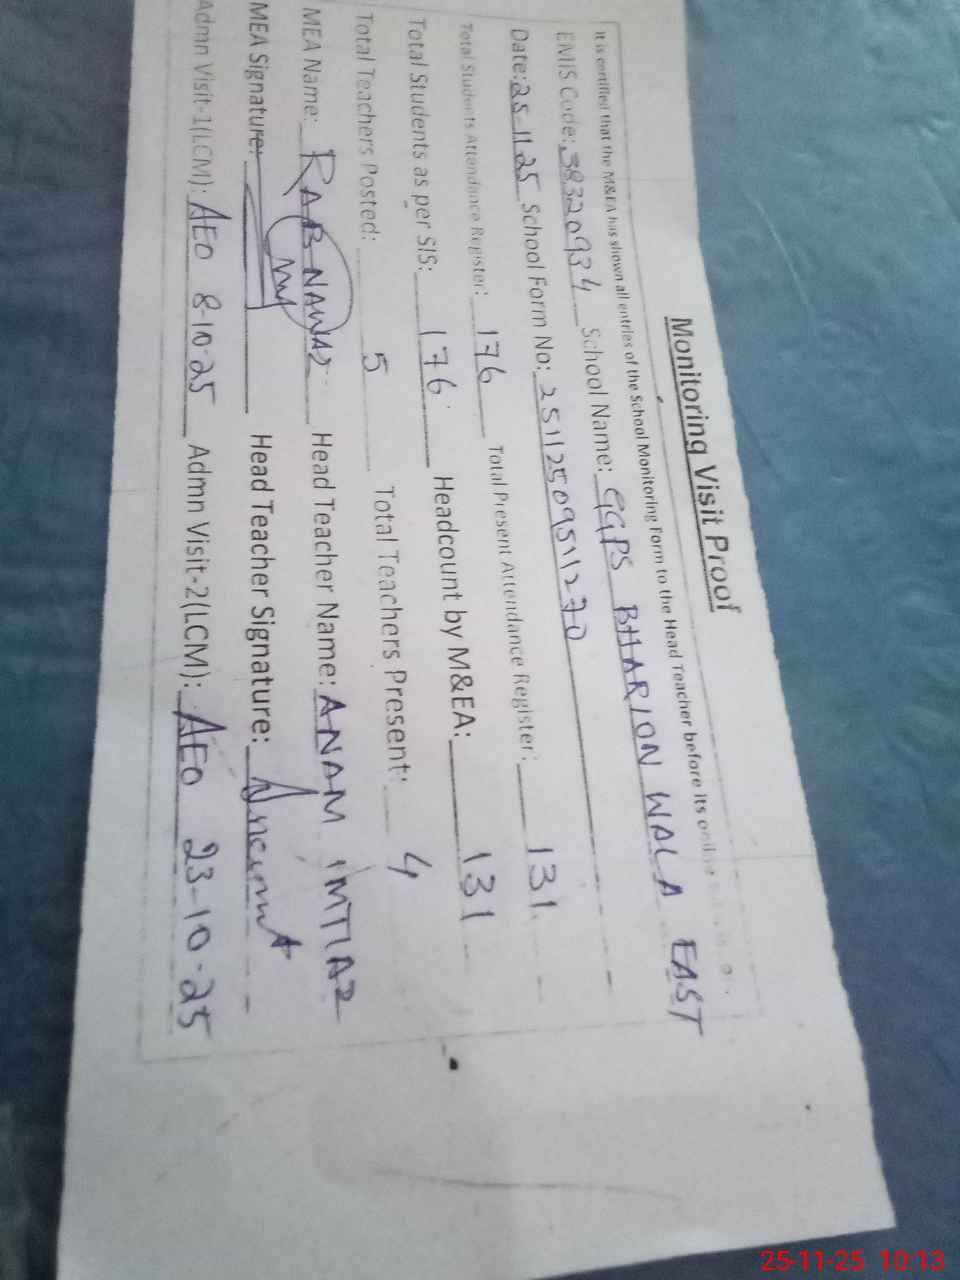 Monitoring Visit Proof
It is certified that the M&EA has shown all entries of the School Monitoring Form to the Head Teacher before its online
EMIS Code: 38320934 School Name: GGPS BHARION WALA EAST
Date: 25-11-25 School Form No: 251125095111270
Total Students Attendance Register: 176 Total Present Attendance Register: 131
Total Students as per SIS: 176 Headcount by M&EA: 131
Total Teachers Posted: 5 Total Teachers Present: 4
MEA Name: RAB NAWAZ Head Teacher Name: ANAM IMTIAZ
MEA Signature: Head Teacher Signature:
Admn Visit-1(LCM): AEO 8-10-25 Admn Visit-2(LCM): AEO 23-10-25
25-11-25 10:13